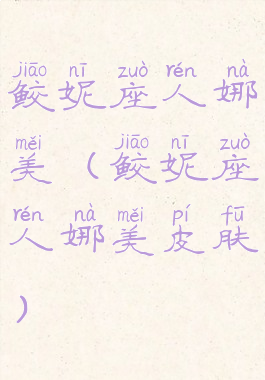 jiāo nī zuò rén nà
鲛妮座人娜
měi jiāo nī zuò
美(鲛妮座
rén nà měi pí fū
人娜美皮肤
)